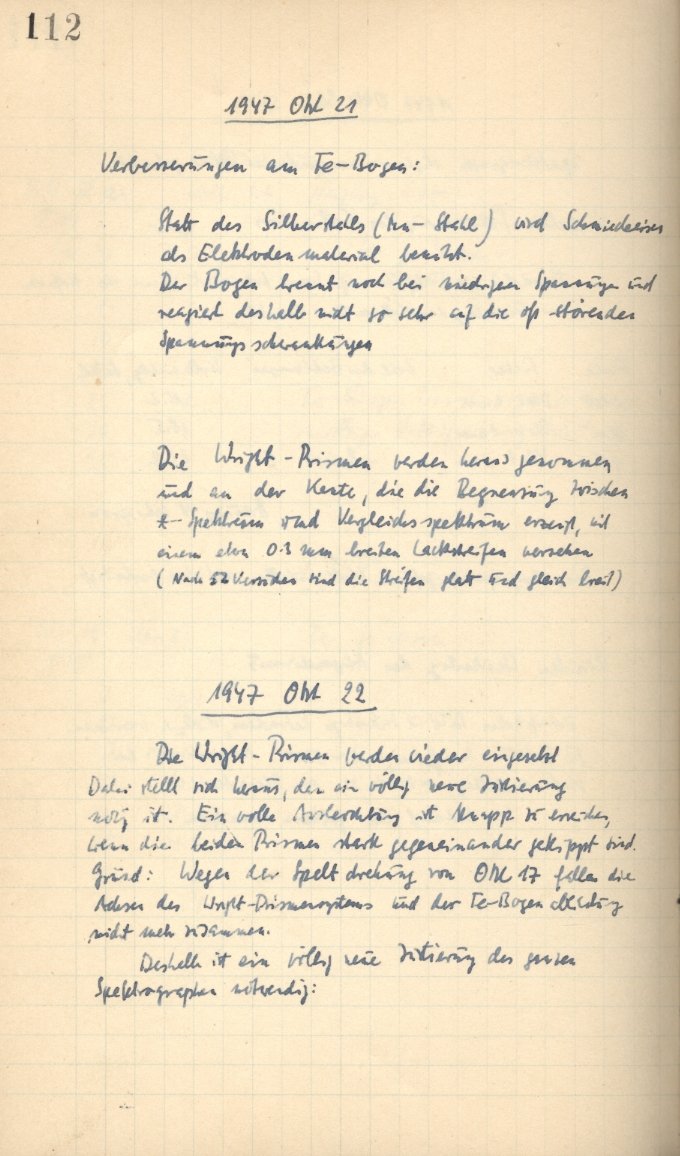 112
1947 Okt 21
Verbesserungen am Fe-Bogen:
Statt des Silberstahls (Mn-Stahl) wird Schmiedeeisen
als Elektrodenmaterial benützt.
Der Bogen brennt noch bei niedrigen Spannungen und
reagiert deshalb nicht so sehr auf die oft störenden
Spannungsschwankungen
Die Wright-Prismen werden herausgenommen
und an der Kante, die die Begrenzung zwischen
*-Spektrum und Vergleichsspektrum erzeugt, mit
einem etwa 0.3 mm breiten Lackstreifen versehen
(Nach Versuchen sind die Streifen glatt und gleich breit)
1947 Okt 22
Die Wright-Prismen werden wieder eingesetzt
Dabei stellt sich heraus, dass ein völlig neue Justierung
nötig ist. Ein volle Ausleuchtung ist knapp zu erreichen,
wenn die beiden Prismen stark gegeneinander gekippt sind.
Grund: Wegen der Spaltdrehung vom Okt 17 fallen die
Achsen des Wright-Prismensystems und der Fe-Bogen
nicht mehr zusammen.
Deshalb ist ein völlig neue Justierung des ganzen
Spektrographen notwendig: